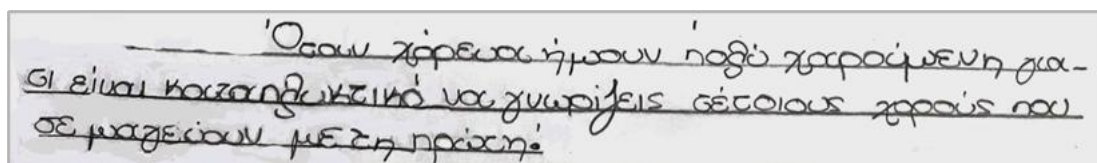 Όταν χόρευα ήμουν πολύ χαρούμενη για-
τι είναι καταπληκτικό να γνωρίζεις τέτοιους χορούς που
σε μαγεύουν με τη πρώτη!